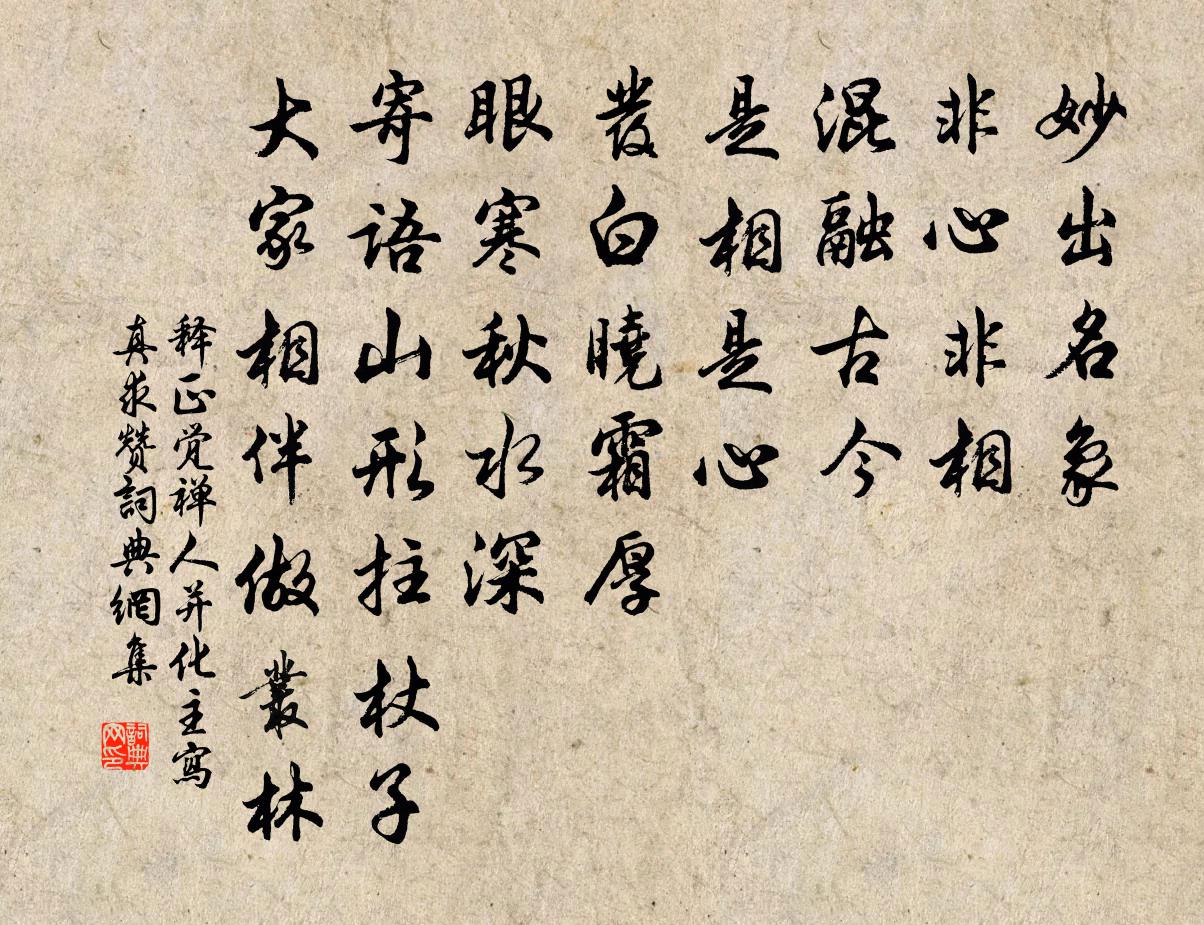 妙出名象
非心非相
混融古今
是相是心
發白曉霜厚
眼寒秋水深
寄語山形拄杖子
大家相伴做叢林
释正觉禅人并化主寫
真求赞詞典網集
詞典
网印